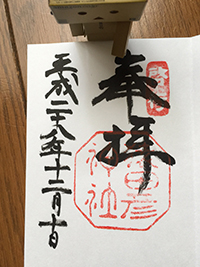 奉拝
田彦
神社
平成二十八年十二月十日